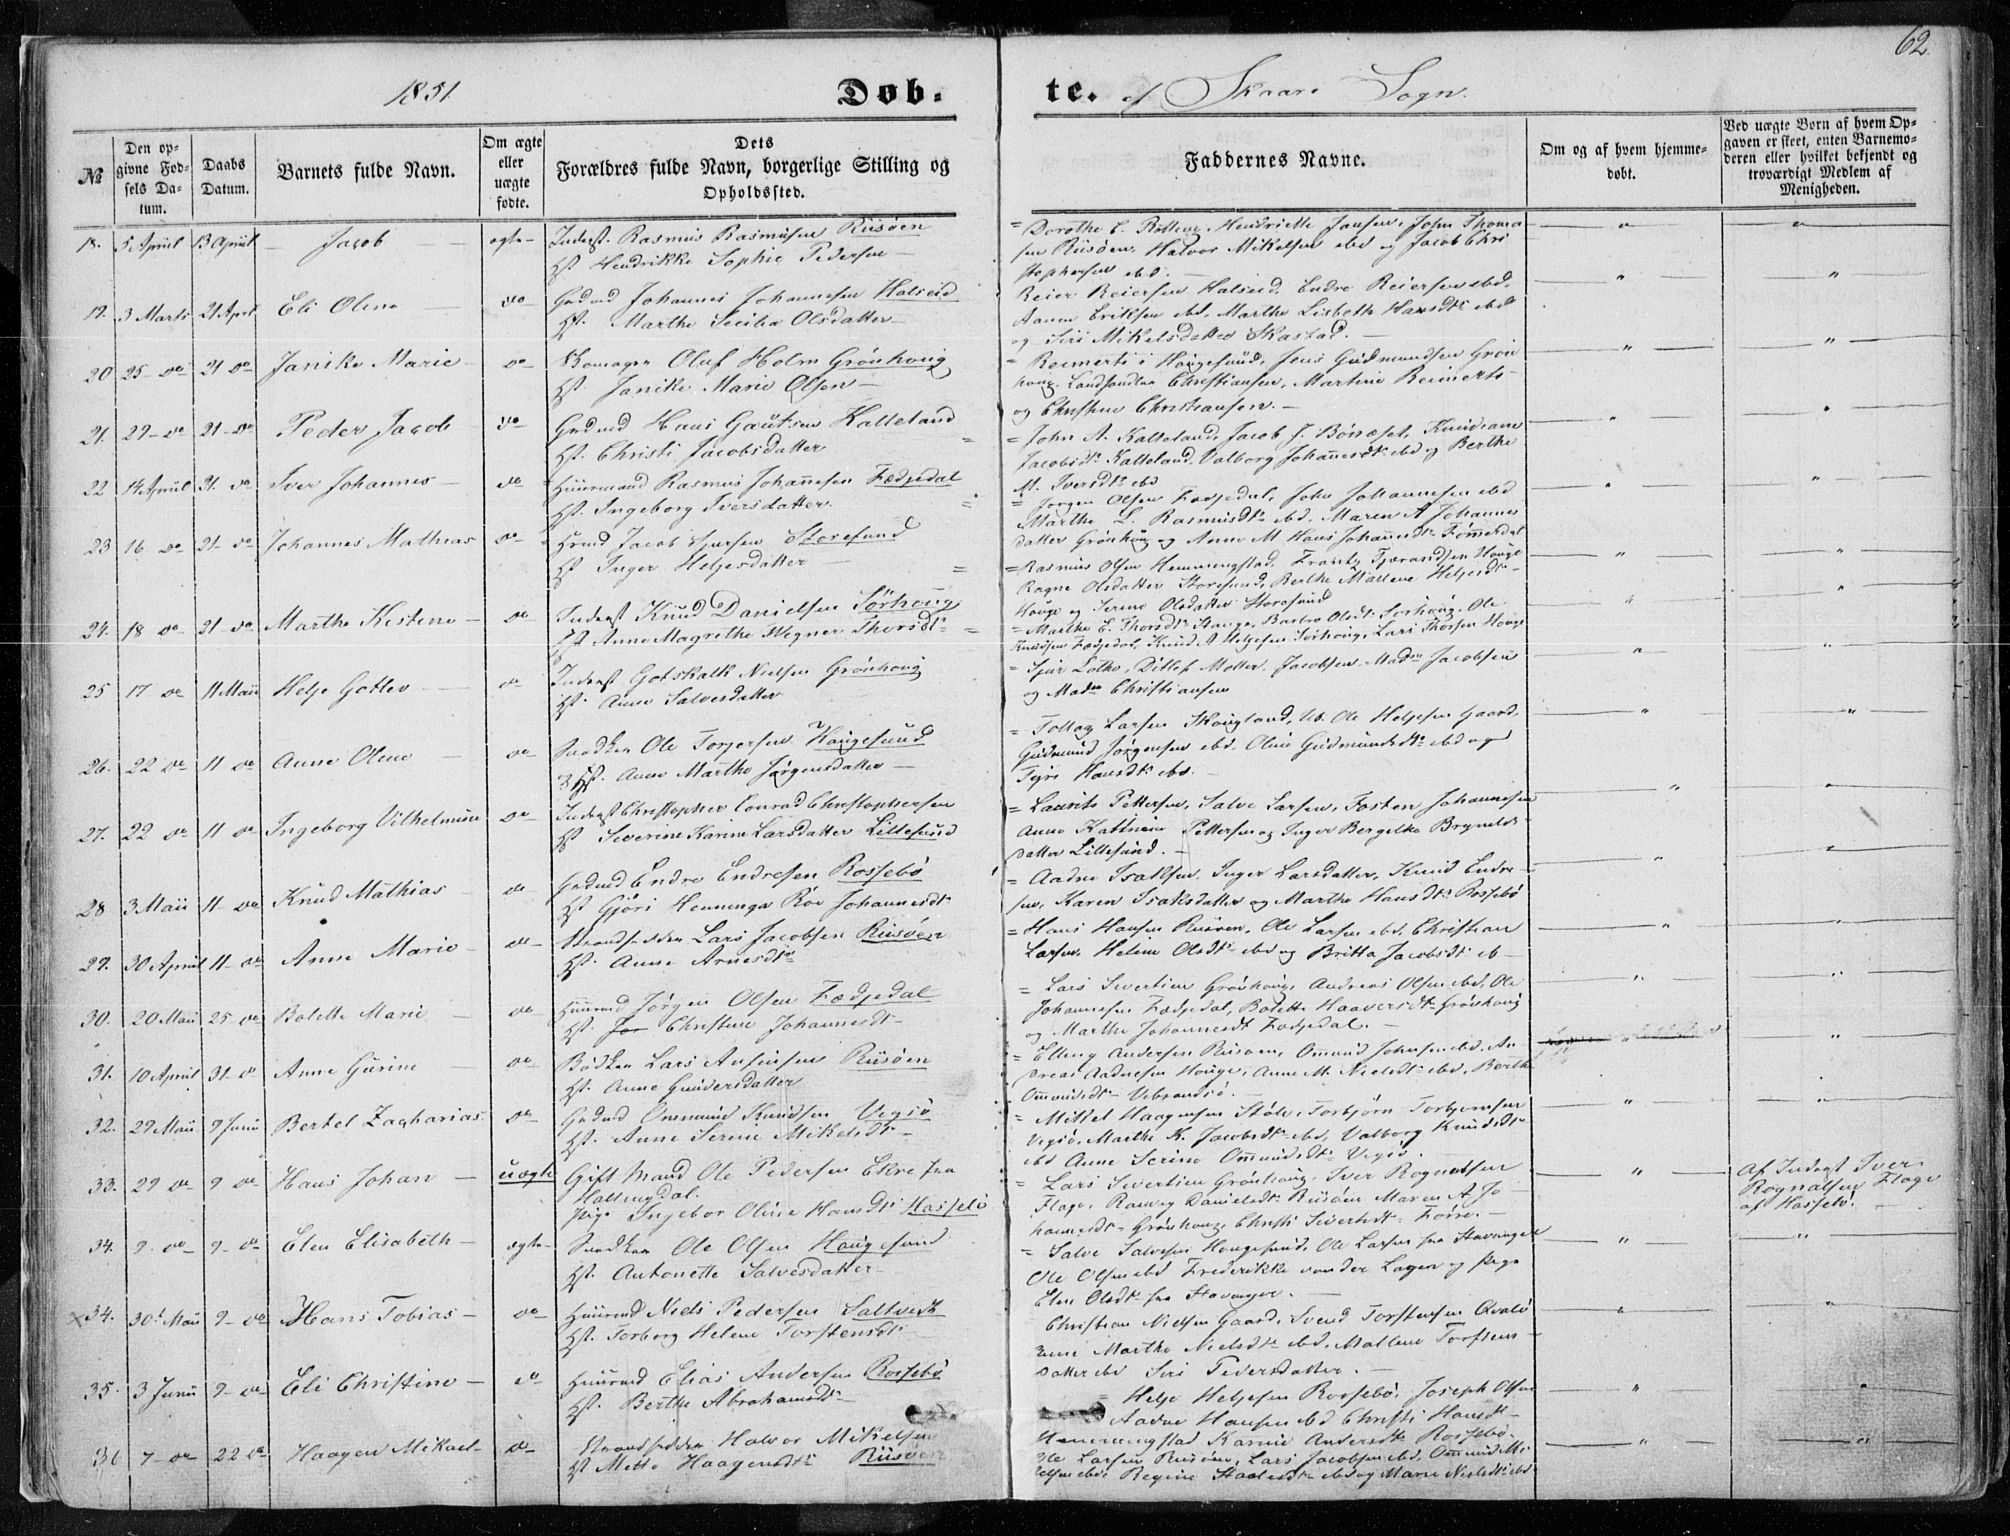 62.
1851. Døb-te. af Skaare Sogn.
№
Den op-
givne Fød-
sels Da-
tum.
Daabs
Datum.
Barnets fulde Navn.
Om ægte
eller
uægte
fødte.
Dets
Forældres fulde Navn, borgerlige Stilling og
Opholdssted.
Faddernes Navne.
Om og af hvem hjemme-
døbt.
Ved uægte Børn af hvem Op-
gaven er skeet, enten Barnemo-
deren eller hvilket bekjendt og
troværdigt Medlem af
Menigheden.
18. 5 April 13 April Jacob ægte Inderst. Rasmus Rasmusen Riisøen
Hst Hendrikke Sophie Pedersen
Hendriette Jansen, John Thoma
sen Riisøen. Halvor Mikelsen ibd og Jacob Chri
stophersen ibd.
19. 3 Marts 21 April Eli Oline do Gadmd Johannes Johannesen Halseid
Hst. Marthe Secilia Olsdatter
Reier Reiersen Halseid, Endre Reiersen ibd.
Aanen Eriksen ibd, Marthe Lisbeth Hansdtr ibd
og Siri Mikelsdatter Skastad.
20 25 do 21 do Janike Marie do Skomager Oluf Holm Grønhoug
Hst. Janike Marie Olsen
Reinerts i Hougesund, Jens Gudmundsen Grøn
houg, Landhandler Christiansen, Martine Reinerts
og Christine Christiansen.
21. 29 do 21 do Peder Jacob do Grdmd Hans Gautsen Kalleland
Hst. Christi Jacobsdatter
John A. Kalleland, Jacob J. Knudsane
Jacobsdtr Kalleland, Valborg Johannesdtr ibd og Berthe
M. Iversdtr ibd
22 14 April 21 do Iver Johannes do Huusmand Rasmus Johannesen Fædjedal
Hst. Ingeborg Iversdatter
Jørgen Olsen Fædjedal, John Johannesen ibd
Marthe L. Rasmusdtr ibd. Maren A Johannes
datter Grønhoug og Anne M Hans Johannesdtr
23 16 do 21 do Johannes Mathias do Jacob Storesund
Hst Inger Heljesdatter
Rasmus Olsen Hemmingstad,
Ragne Olsdatter Storesund, Berthe Malene Heljesdtr
Houge og Serene Olsdatter Storesund
24. 18 do 21 do Marthe Kistene do Inderst Knud Danielsen Sørhoug
Hst Anne Magrethe Wegner Thorsdtr
Marthe E. Thorsdtr Hauge, Barbro Olsdtr Sørhoug, Ole
Knudsen Fædjedal, Knud A Heljesen Sørhoug, Lars Thorsen Houge
25 17 do 11 Maii Helje Gotlev do Inderst Gotskalk Nielsen Grønhoug
Hst. Anne Salvesdatter
Sjur Lothe, Ditlef Møller, Jacobsen Madm Jacobsen
og Madm Christiansen
26. 22 do 11 do Anne Olene do Snedker Ole Torjersen Haugesund
Hst. Anne Marthe Jørgensdatter
Tollag Larsen Skougland, Ole Heljesen Gaard,
Gudmund Jørgensen ibd. Oline Gudmundsdtr ibd og
Hansdtr ibd.
27. 22 do 11 do Ingeborg Vilhelmine do Inderst Christopher Conrad Christophersen
Hst Severine Karine Larsdatter Lillesund
Laurits Pettersen, Salve Larsen, Tosten Johannesen
Anne Kathrine Pettersen og Inger Bergithe Bryneldt
datter Lillesund.
28 3 Maii 11 do Knud Mathias do Grdmd Endre Endresen Rossebø
Hst Gjøri Henninga Røe Johannesdtr
Aadne Isaksen, Inger Larsdatter, Knud Endre-
sen, Karen Isaksdatter og Marthe Hansdtr Rossebø
29. 30 April 11 do Anne Marie do Strandsidder Lars Jacobsen Riisøen
Hst. Anne Arnesdtr
Hans Hansen Riisøen, Ole Larsen ibd. Christian
Larsen, Heline Olsdtr ibd og Britta Jacobsdtr ib
30. 20 Maii 25 do Bolette Marie do Huusmd Jørgen Olsen Fædjedal
Hst. Christine Johannesdtr
Lars Sivertsen Grønhoug, Andreas Olsen ibd, Ole
Johannesen Fædjedal, Bolette Haaversdtr Grønhoug
og Marthe Johannesdt Fædjedal.
31. 10 April 31 do Anne Gurine do Bødker Lars Riisøen
Hst. Anne Gundersdatter
Elling Andersen Riisøen, Omund Johnsen ibd. An
dreas Aadnesen Houge, Anne M. Nielsdtr ibd, Berthe
Ommundsdtr
32. 29 Maii 9 Junii Bertel Zacharias do Grdmd Ommund Knudsen Vegsø
Hst. Anne Serine Mikelsdtr
Mikkel Haagensen Støle, Torbjørn Torbjørnsen
Vegsø, Marthe K. Jacobsdtr ibd, Valborg Knudsdtr
ibd Anne Serine Ommundsdtr Vegsø.
33. 29 do 9 do Hans Johan uægte Gift Mand Ole Pedersen Ekre fra
Hallingdal.
Pige Ingebor Oline Hansdtr Hasselø
Lars Sivertsen Grønhoug, Iver Rognalsen
Flage, Ranveg Danielsdtr Riisøen Maren A Jo
hannesdtr Grønhoug, Christi Sivertsdtr Førre.
Af Inderst Iver
Rognalsen Flage
af Hasselø.
34. 9 do 9 do Elen Elisabeth ægte Snedker Ole Olsen Haugesund
Hst. Antonette Salvesdatter
Salve Salvesen Hougesund, Ole Larsen fra Stavanger
Ole Olsen ibd Frederikke vander Lagen og Pige
Elen Olsdtr fra Stavanger.
34. 30te Maii 9 do Hans Tobias do Huusmd Niels Pedersen Saltveit
Hst. Torborg Helene Torstensdtr
Christian Nielsen Gaard, Svend Torstensen Qvalø
Marthe Nielsdtr ibd, Mallene Torstens
datter ibd Siri Pedersdatter.
35. 3 Junii 9 do Eli Christine do Huusmd Elias Andersen Rossebø
Hst. Berthe Abrahamsdtr
Helje Heljesen Rossebø, Joseph Olsen
Aadne Hansen ibd Christi Hansdtr
Hemmingstad Karine Andersdtr Rossebø.
36 7 do 22 do Haagen Mikael do Strandsidder Halvor Mikelsen
Hst Mette Haagensdtr Riisøen
Ole Larsen Riisøen, Lars Jacobsen ibd, Ommund Mi
kelsen ibd. Regine ibd og Marie Nielsdtr ibd